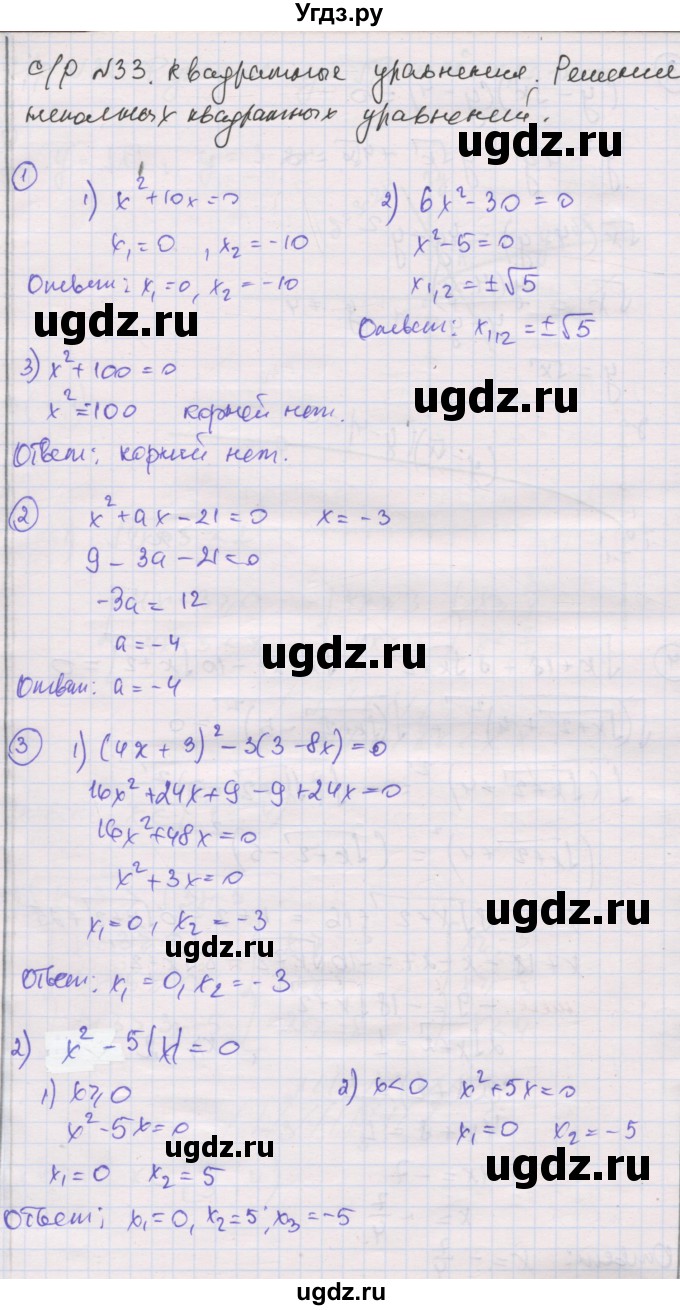 Угдз.ру
С/р №33. Квадратные уравнения. Решение
неполных квадратных уравнений.
①
1) x² + 10x = 0
x₁ = 0 , x₂ = -10
Ответ: x₁ = 0, x₂ = -10
2) 6x² - 30 = 0
x² - 5 = 0
x₁,₂ = ±√5
Ответ: x₁,₂ = ±√5
ugdz.ru
ugdz.ru
3) x² + 100 = 0
x² = -100 корней нет.
Ответ: корний нет.
ugdz.ru
② x² + ax - 21 = 0 x = -3
9 - 3a - 21 = 0
-3a = 12
a = -4
Ответ: a = -4
ugdz.ru
③ 1) (4x + 3)² - 3(3 - 8x) = 0
16x² + 24x + 9 - 9 + 24x = 0
16x² + 48x = 0
x² + 3x = 0
x₁ = 0, x₂ = -3
Ответ: x₁ = 0, x₂ = -3
ugdz.ru
ugdz.ru
2) x² - 5|x| = 0
1) x ≥ 0
x² - 5x = 0
x₁ = 0 x₂ = 5
2) x < 0 x² + 5x = 0
x₁ = 0 x₂ = -5
Ответ: x₁ = 0, x₂ = 5, x₃ = -5
ugdz.ru
ugdz.ru
ugdz.ru